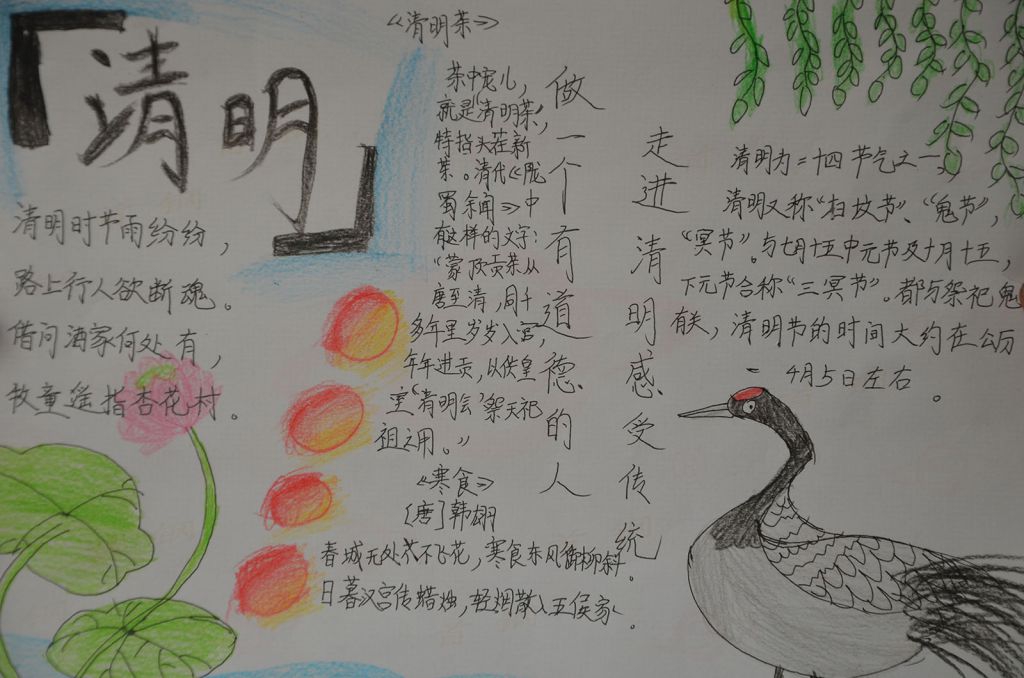 「清明」
清明时节雨纷纷，
路上行人欲断魂。
借问酒家何处有，
牧童遥指杏花村。
《清明茶》
茶中宠儿，
就是清明茶，
特指头茬新
茶。清代《陇
蜀余闻》中
有这样的文字：
“蒙顶贡茶从
唐至清，同十
多年里岁岁入宫，
年年进贡，以供皇
室‘清明会’祭天祀
祖之用。”
《寒食》
［唐］韩翃
春城无处不飞花，寒食东风御柳斜。
日暮汉宫传蜡烛，轻烟散入五侯家。
做一个有道德的人
走进清明感受传统
清明为二十四节气之一，
清明又称“扫坟节”、“鬼节”，
“冥节”。与七月十五中元节及十月十五，
下元节合称“三冥节”。都与祭祀鬼
有关，清明节的时间大约在公历
4月5日左右。